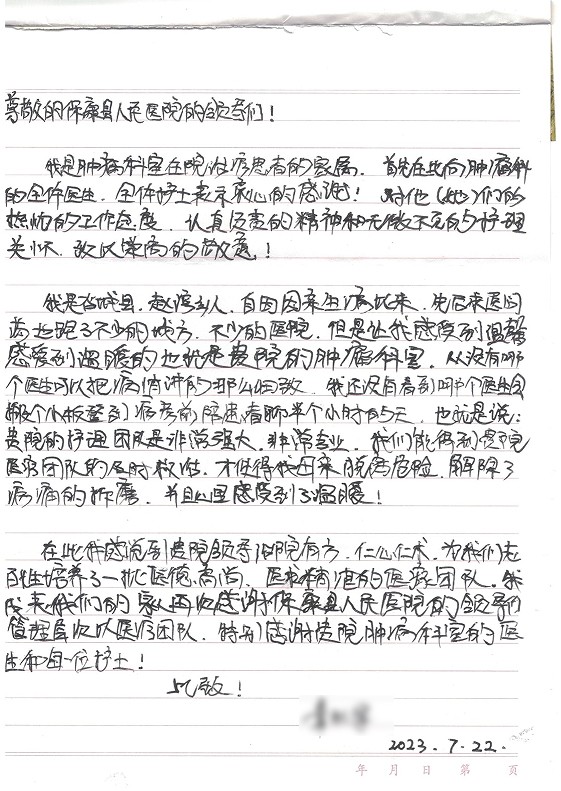 尊敬的保康县人民医院的领导们!
我是肿瘤科室住院治病患者的家属, 首先在此向肿瘤科
的全体医生, 全体护士表示衷心的感谢! 对他(她)们的
热忱的工作态度, 认真负责的精神和无微不至的护理
关怀, 致以崇高的敬意!
我是谷城县, 人, 自因因亲生病以来, 先后来医问
药也跑了不少的地方, 不少的医院, 但是让我感受到温馨
感受到温暖的也就是贵院的肿瘤科室, 从没有哪
个医生可以把病情讲的那么细致, 我还没有看到哪个医生会
搬个小板凳到病者前陪患者聊半个小时的天, 也就是说:
贵院的护理团队是非常强大, 非常专业, 我们能得到贵院
医疗团队的及时救治, 才使得我因亲脱离危险, 解除了
病痛的折磨, 并且心里感受到了温暖!
在此我感觉到贵院领导治院有方, 仁心仁术, 为我们老
百姓培养了一批医德高尚, 医术精湛的医疗团队, 我
代表我们的家人再次感谢保康县人民医院的领导们
管理层次以医疗团队, 特别感谢贵院肿瘤科室的医
生和每一位护士!
此致!
2023.7.22.
年 月 日 第 页